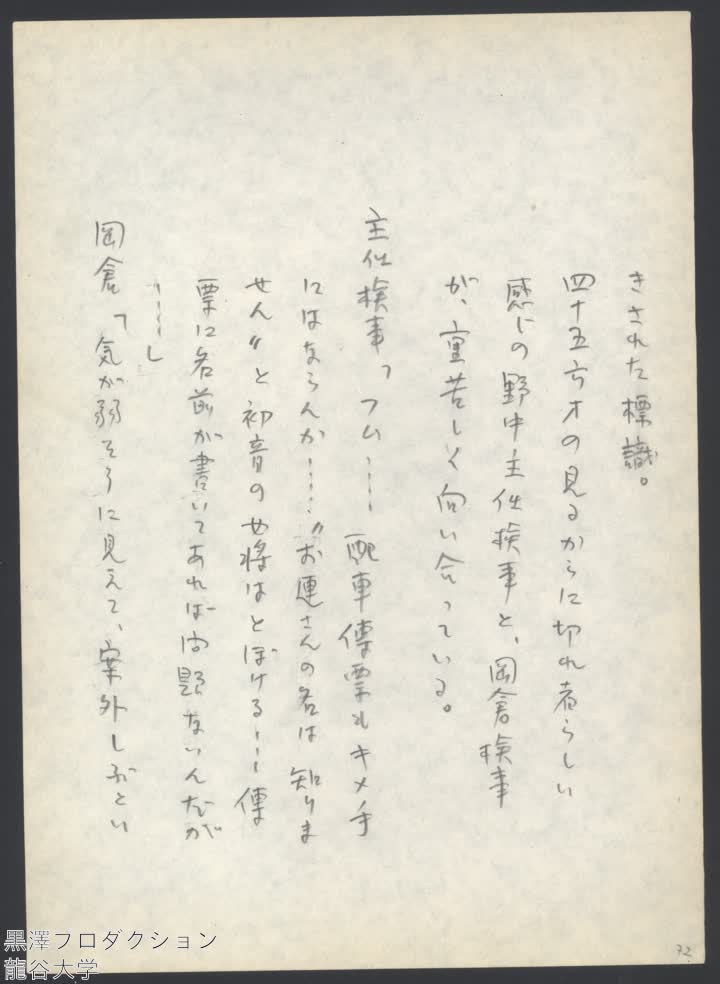 きされた標識。
四十五六才の見るからに切れ者らしい
感じの野中主任検事と、岡倉検事
が、重苦しく向い合っている。
主任検事「フム……配車傳票もキメ手
にはならんか……〝お連さんの名は知りま
せん〟と初音の女将はとぼける……傳
票に名前が書いてあれば問題ないんだが
……」
岡倉「気が弱そうに見えて、案外しぶとい
72
黒澤プロダクション
龍谷大学